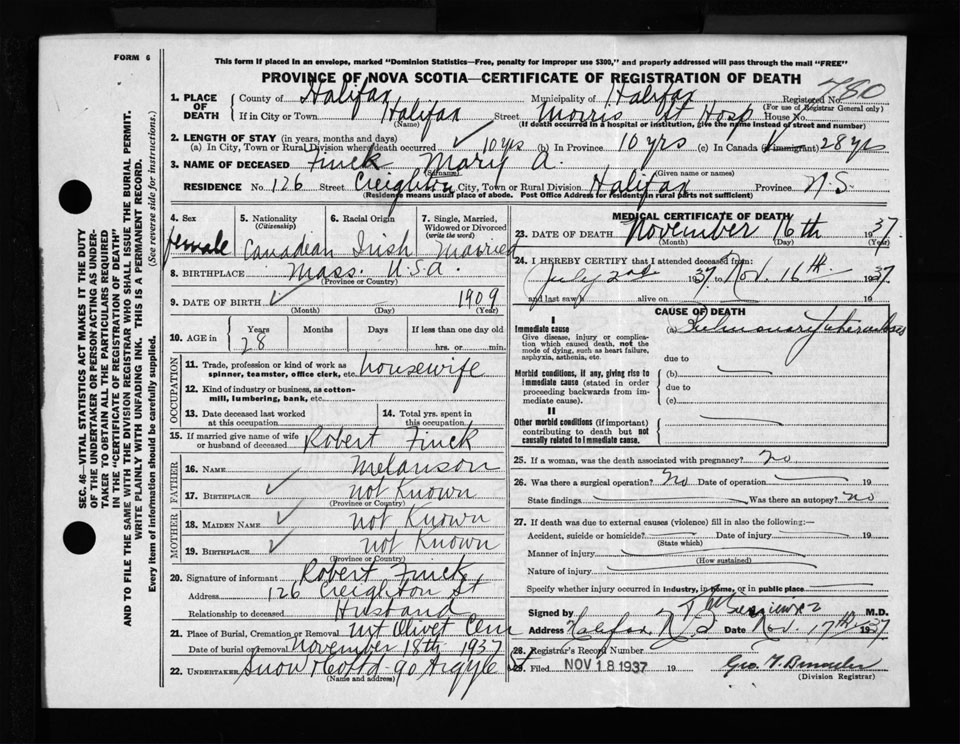 FORM 6
This form if placed in an envelope, marked "Dominion Statistics—Free, penalty for improper use $300," and properly addressed will pass through the mail "FREE"
PROVINCE OF NOVA SCOTIA—CERTIFICATE OF REGISTRATION OF DEATH
1. PLACE OF DEATH County of Halifax Municipality of Halifax Registered No. 780
(For use of Registrar General only)
If in City or Town Halifax Street Morris St Hosp House No.
(Name) (If death occurred in a hospital or institution, give the name instead of street and number)
2. LENGTH OF STAY (in years, months and days)
(a) In City, Town or Rural Division where death occurred 10 yrs (b) In Province 10 yrs (c) In Canada (if immigrant) 28 yrs
3. NAME OF DECEASED Finck Mary A.
(Surname) (Given name or names)
RESIDENCE No. 126 Street Creighton City, Town or Rural Division Halifax Province N.S.
(Residence means usual place of abode. Post Office Address for residents in rural parts not sufficient)
4. Sex
female
5. Nationality
(Citizenship)
Canadian
6. Racial Origin
Irish
7. Single, Married, Widowed or Divorced
(write the word)
Married
8. BIRTHPLACE Mass. U.S.A.
(Province or Country)
9. DATE OF BIRTH 1909
(Month) (Day) (Year)
10. AGE in Years Months Days If less than one day old
28 hrs. or min.
OCCUPATION
11. Trade, profession or kind of work as spinner, teamster, office clerk, etc. housewife
12. Kind of industry or business, as cotton-mill, lumbering, bank, etc.
13. Date deceased last worked at this occupation
14. Total yrs. spent in this occupation
15. If married give name of wife or husband of deceased Robert Finck
FATHER
16. NAME Melanson
17. BIRTHPLACE not Known
(Province or Country)
MOTHER
18. MAIDEN NAME not Known
19. BIRTHPLACE not Known
(Province or Country)
20. Signature of informant Robert Finck
Address 126 Creighton St
Relationship to deceased Husband
21. Place of Burial, Cremation or Removal Mt Olivet Cem
Date of burial or removal November 18th 1937
22. UNDERTAKER Snow & Co Ltd - 90 Argyle St
(Name and address)
MEDICAL CERTIFICATE OF DEATH
23. DATE OF DEATH November 16th 1937
(Month) (Day) (Year)
24. I HEREBY CERTIFY that I attended deceased from:
July 2nd 1937 to Nov. 16th 1937
and last saw h alive on 19
CAUSE OF DEATH
I
Immediate cause
Give disease, injury or complication which caused death, not the mode of dying, such as heart failure, asphyxia, asthenia, etc.
(a) Pulmonary Tuberculosis
due to
Morbid conditions, if any, giving rise to immediate cause (stated in order proceeding backwards from immediate cause).
(b)
due to
(c)
II
Other morbid conditions (if important) contributing to death but not causally related to immediate cause.
25. If a woman, was the death associated with pregnancy? No
26. Was there a surgical operation? No Date of operation 19
State findings Was there an autopsy? No
27. If death was due to external causes (violence) fill in also the following:—
Accident, suicide or homicide? Date of injury 19
(State which)
Manner of injury
(How sustained)
Nature of injury
Specify whether injury occurred in industry, in home, or in public place
Signed by M.D.
Address Halifax N S Date Nov. 17th 1937
28. Registrar's Record Number
29. Filed NOV 18 1937 19 Geo. T.
(Division Registrar)
SEC. 46—VITAL STATISTICS ACT MAKES IT THE DUTY
OF THE UNDERTAKER OR PERSON ACTING AS UNDER-
TAKER TO OBTAIN ALL THE PARTICULARS REQUIRED
IN THE "CERTIFICATE OF REGISTRATION OF DEATH"
AND TO FILE THE SAME WITH THE DIVISION REGISTRAR WHO SHALL ISSUE THE BURIAL PERMIT.
WRITE PLAINLY WITH UNFADING INK. THIS IS A PERMANENT RECORD.
Every item of information should be carefully supplied. (See reverse side for instructions.)